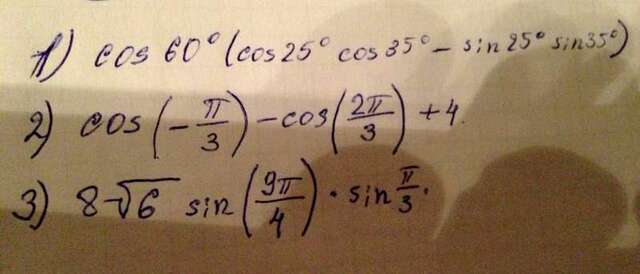 1) cos 60° (cos 25° cos 35° - sin 25° sin 35°)
2) cos (-π/3) - cos (2π/3) + 4
3) 8-√6 sin (9π/4) · sin π/3.